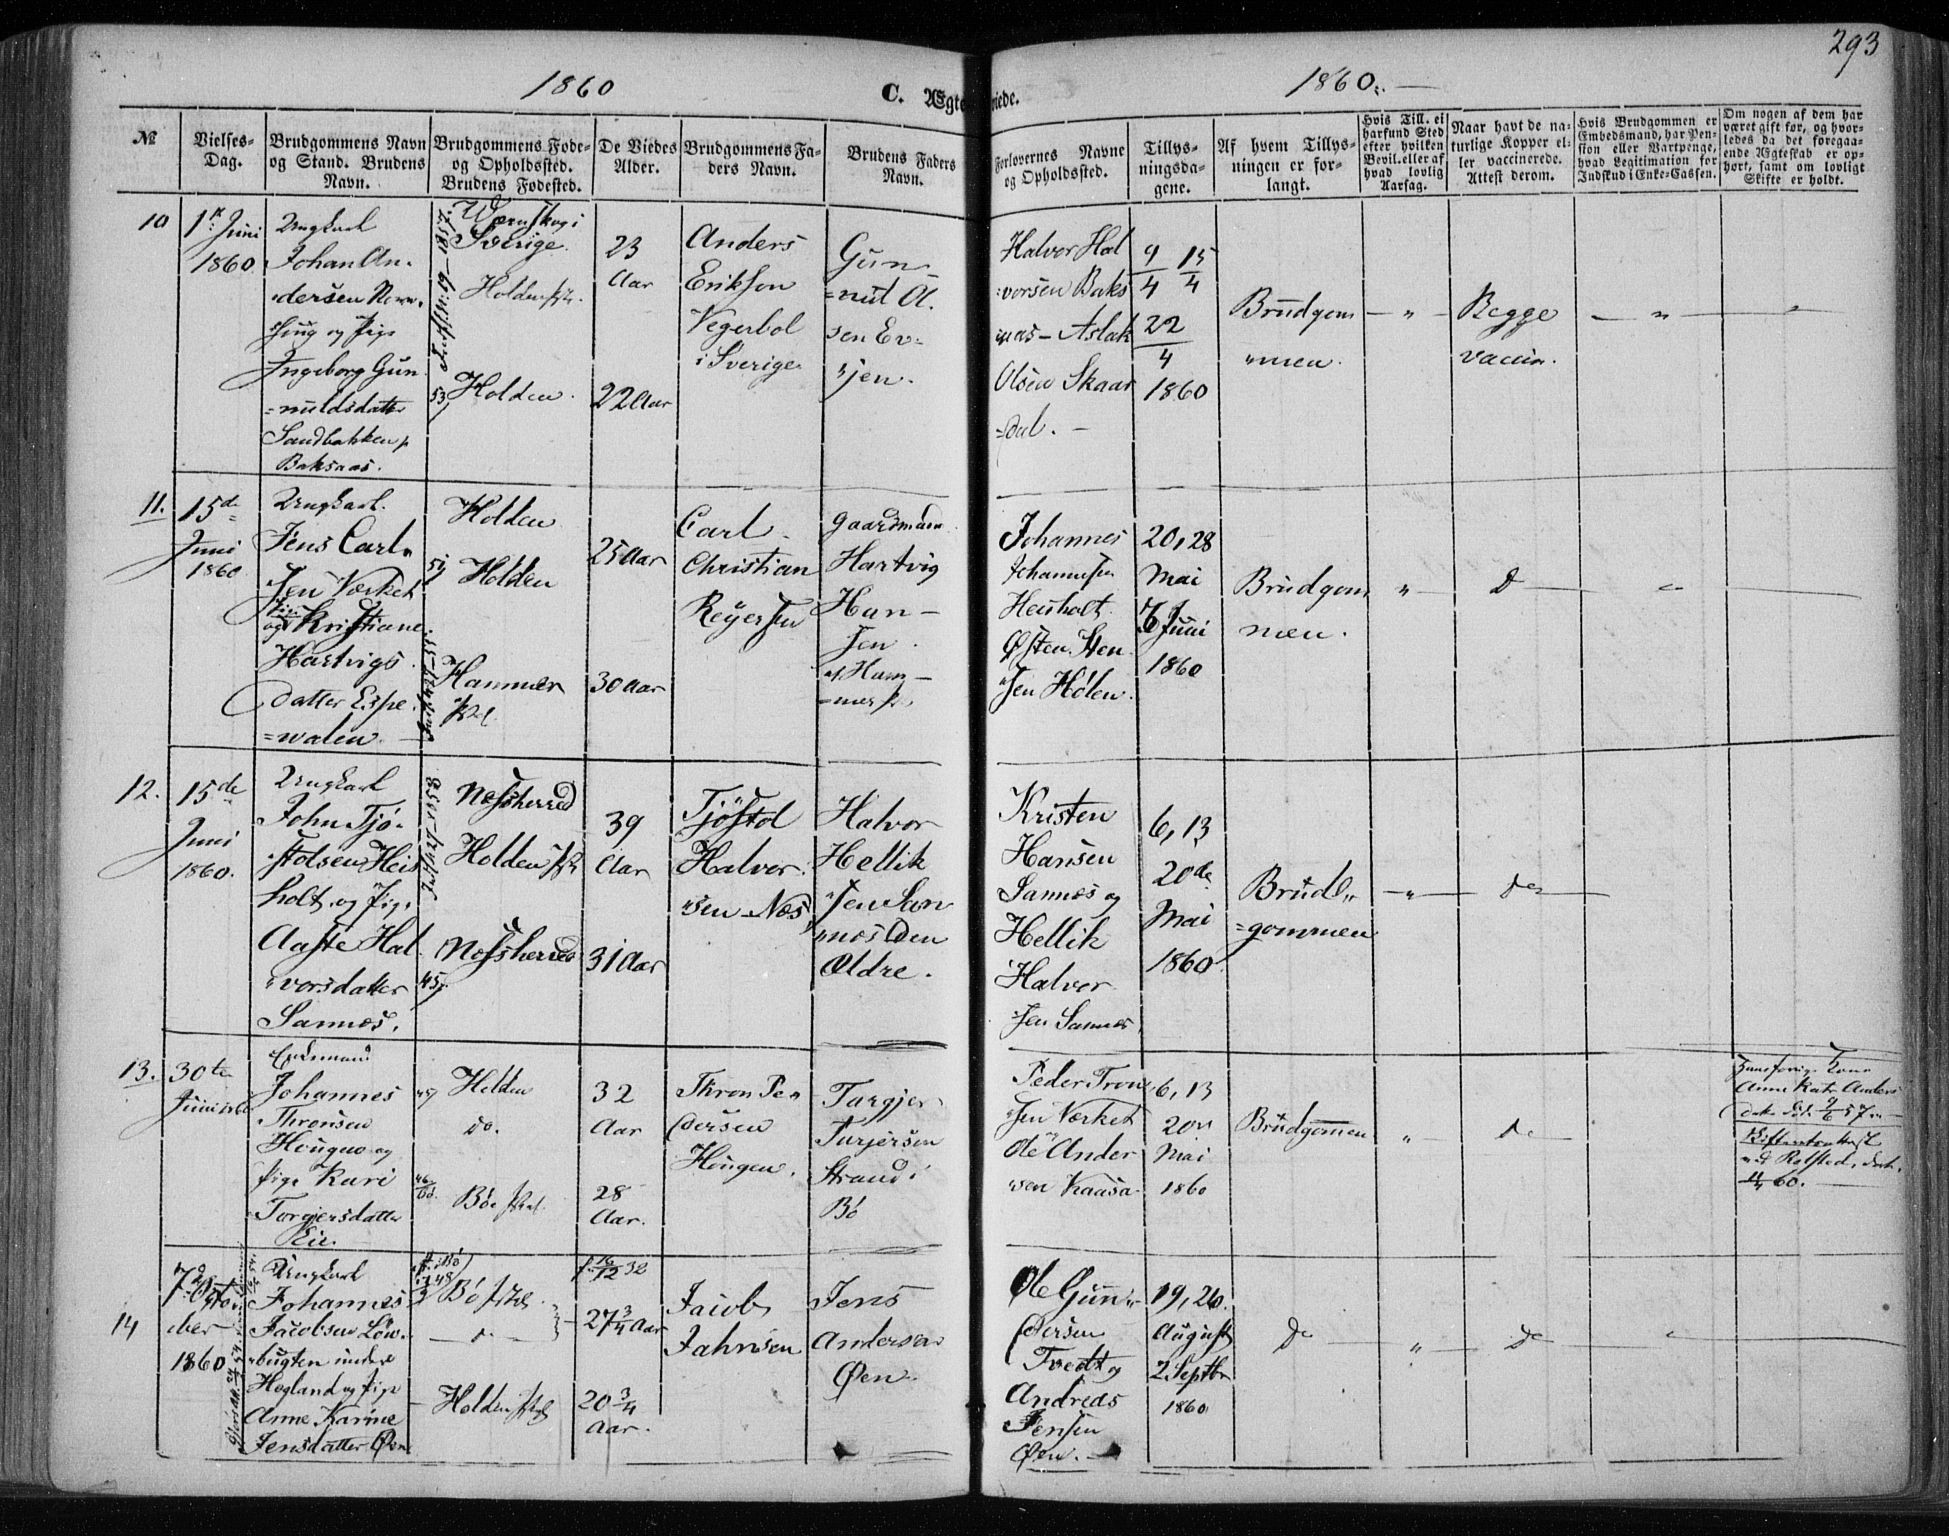 293
1860
C. Ægteviede.
1860.
№
Vielses-
Dag.
Brudgommens Navn
og Stand. Brudens
Navn.
Brudgommens Føde-
og Opholdssted.
Brudens Fødested.
De Viedes
Alder.
Brudgommens Fa-
ders Navn.
Brudens Faders
Navn.
Forlovernes Navne
og Opholdssted.
Tillys-
ningsda-
gene.
Af hvem Tillys-
ningen er for-
langt.
Hvis Till. ei
har fund Sted
efter hvilken
Bevil. eller af
hvad lovlig
Aarsag.
Naar havt de na-
turlige Kopper el-
ler vaccinerede.
Attest derom.
Hvis Brudgommen er
Embedsmand, har Pen-
sion eller Vartpenge,
hvad Legitimation for
Indskud i Enke-Cassen.
Om nogen af dem har
været gift før, og hvor-
ledes da det foregaa-
ende Ægteskab er op-
hørt, samt om lovligt
Skifte er holdt.
10
1ste Juni
1860
Ungkarl
Johan An-
dersen
og Pige
Ingeborg Gun
=nuldsdatter
Sandbakken p
Baksaas.
Sverige.
Holden
Holden
23
Aar
22 Aar
Anders
Erikson
Vegerbol
i Sverige
Gun
=nul Ol
sen Ev-
jen.
Halvor Hal
vorsen Baks
aas - Aslak
Olsen Skaar
=dal. -
9/4 15/4
22/4
1860
Brudgom
men.
"
Begge
vaccin.
"
"
11.
15de
Juni
1860
Ungkarl.
Jens Carl
sen Værket
og Pige Kristiane
Hartvigs
datter Espe
=walen
Holden
Holden
Hammer
25 Aar
30 Aar
Carl
Christian
Reyersen
Gaardmand
Hartvig
Han-
sen
Ham-
=mer
Johannes
Johannesen
Heisholt
Østen Sten
sen Holen.
20, 28
Mai
Juni
1860
Brudgom
men.
"
Do
"
12.
15de
Juni
1860.
Ungkarl
John Tjø-
stolsen Heis
holt og Pige
Aaste Hal
vorsdatter
Sannes.
Nessherred
Holden
Nessherred
39
Aar
31 Aar
Tjøstol
Halvor
sen Næs
Halvor
Hellik
sen San
næs Den
Ældre.
Kristen
Hansen
Sannes og
Hellik
Halvor
sen Sannes
6, 13
20de
Mai
1860
Brud-
=gommen
"
Do
13.
30te
Juni 1860
Enkemand
Johannes
Thronsen
Hougen og
Pige Kari
Torgjersdatter
Eie.
Holden
do.
Bø
32
Aar
28
Aar.
Thron Pe-
dersen
Hougen.
Torgjer
Turjersen
Strand i
Bø
Peder Tron
sen Værket
Ole Ander
sen Kaasa
6, 13
20
Mai
1860
Brudgommen
"
Do
Anne Kat. Anders
57
60.
14
7de Octo
ber
1860
Ungkarl
Johannes
Jacobsen Løw-
bugten
Hogland og Pige
Anne Karine
Jensdatter Øen
Bø
Holden
27 3/4 Aar
20 3/4
Aar.
Jacob
Jahnsen
Jens
Andersen
Øen.
Ole Gun-
dersen
Tvedt og
Andreas
Jensen
Øen. -
19, 26
August
2 Septbr
1860
Do
"
Do
"